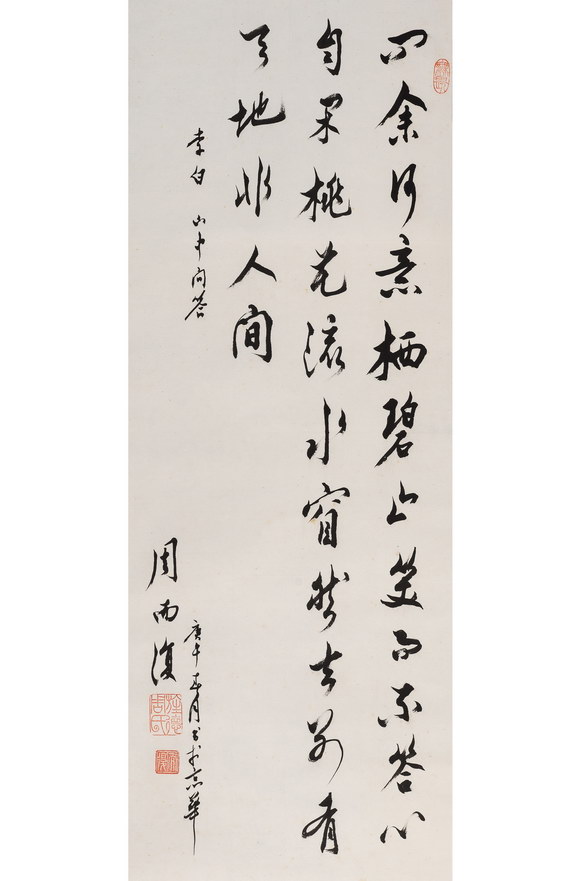 问余何意栖碧山笑而不答心
自闲桃花流水窅然去别有
天地非人间
李白 山中问答
庚午月书于京华
周而復